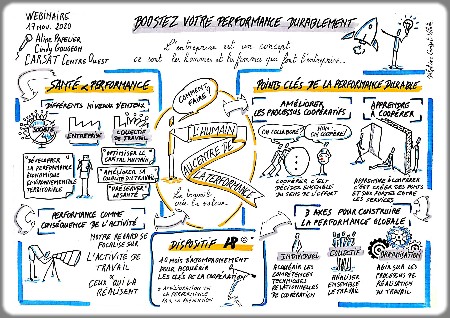 WEBINAIRE
17 NOV. 2020
Aline PAPELIER
Cindy GOUGEON
CARSAT CENTRE OUEST
BOOSTEZ VOTRE PERFORMANCE DURABLEMENT
L'entreprise est un concept
ce sont les hommes et les femmes qui font l'entreprise...
SANTÉ & PERFORMANCE
DIFFÉRENTS NIVEAUX D'ENJEUX
SOCIÉTÉ
ENTREPRISE
COLLECTIF
DE TRAVAIL
DÉVELOPPER
LA PERFORMANCE
ÉCONOMIQUE
ENVIRONNEMENTALE
TERRITORIALE
OPTIMISER LE
CAPITAL HUMAIN
AMÉLIORER LA
QUALITÉ DU TRAVAIL
PRÉSERVER
LA SANTÉ
PERFORMANCE COMME
CONSÉQUENCE DE L'ACTIVITÉ
NOTRE REGARD SE
FOCALISE SUR
L'ACTIVITÉ DE
TRAVAIL
X
CEUX QUI LA
RÉALISENT
COMMENT
FAIRE
L'HUMAIN
AU CENTRE DE
LA PERFORMANCE
Le travail
crée la valeur
DISPOSITIF
MOIS D'ACCOMPAGNEMENT
POUR ACQUÉRIR
LES CLÉS DE LA COOPÉRATION
AMÉLIORATION DE
LA PERFORMANCE
PAR LA PRÉVENTION
POINTS CLÉS DE LA PERFORMANCE DURABLE
AMÉLIORER
LES PROCESSUS COOPÉRATIFS
ON COLLABORE
NON
ON COOPÈRE!
COOPÉRER C'EST
DÉCIDER ENSEMBLE
DU SENS DE L'EFFORT
APPRENDRE
À COOPÉRER
APPRENDRE À COOPÉRER
C'EST CRÉER DES PONTS
ET DES PORTES ENTRE
LES SERVICES
3 AXES POUR CONSTRUIRE
LA PERFORMANCE GLOBALE
INDIVIDUEL
ACQUÉRIR LES
COMPÉTENCES
TECHNIQUES
RELATIONNELLES
DE COOPÉRATION
COLLECTIF
RÉALISER
ENSEMBLE
LE TRAVAIL
ORGANISATION
AGIR SUR LES
PROCESSUS DE
RÉALISATION
DU TRAVAIL